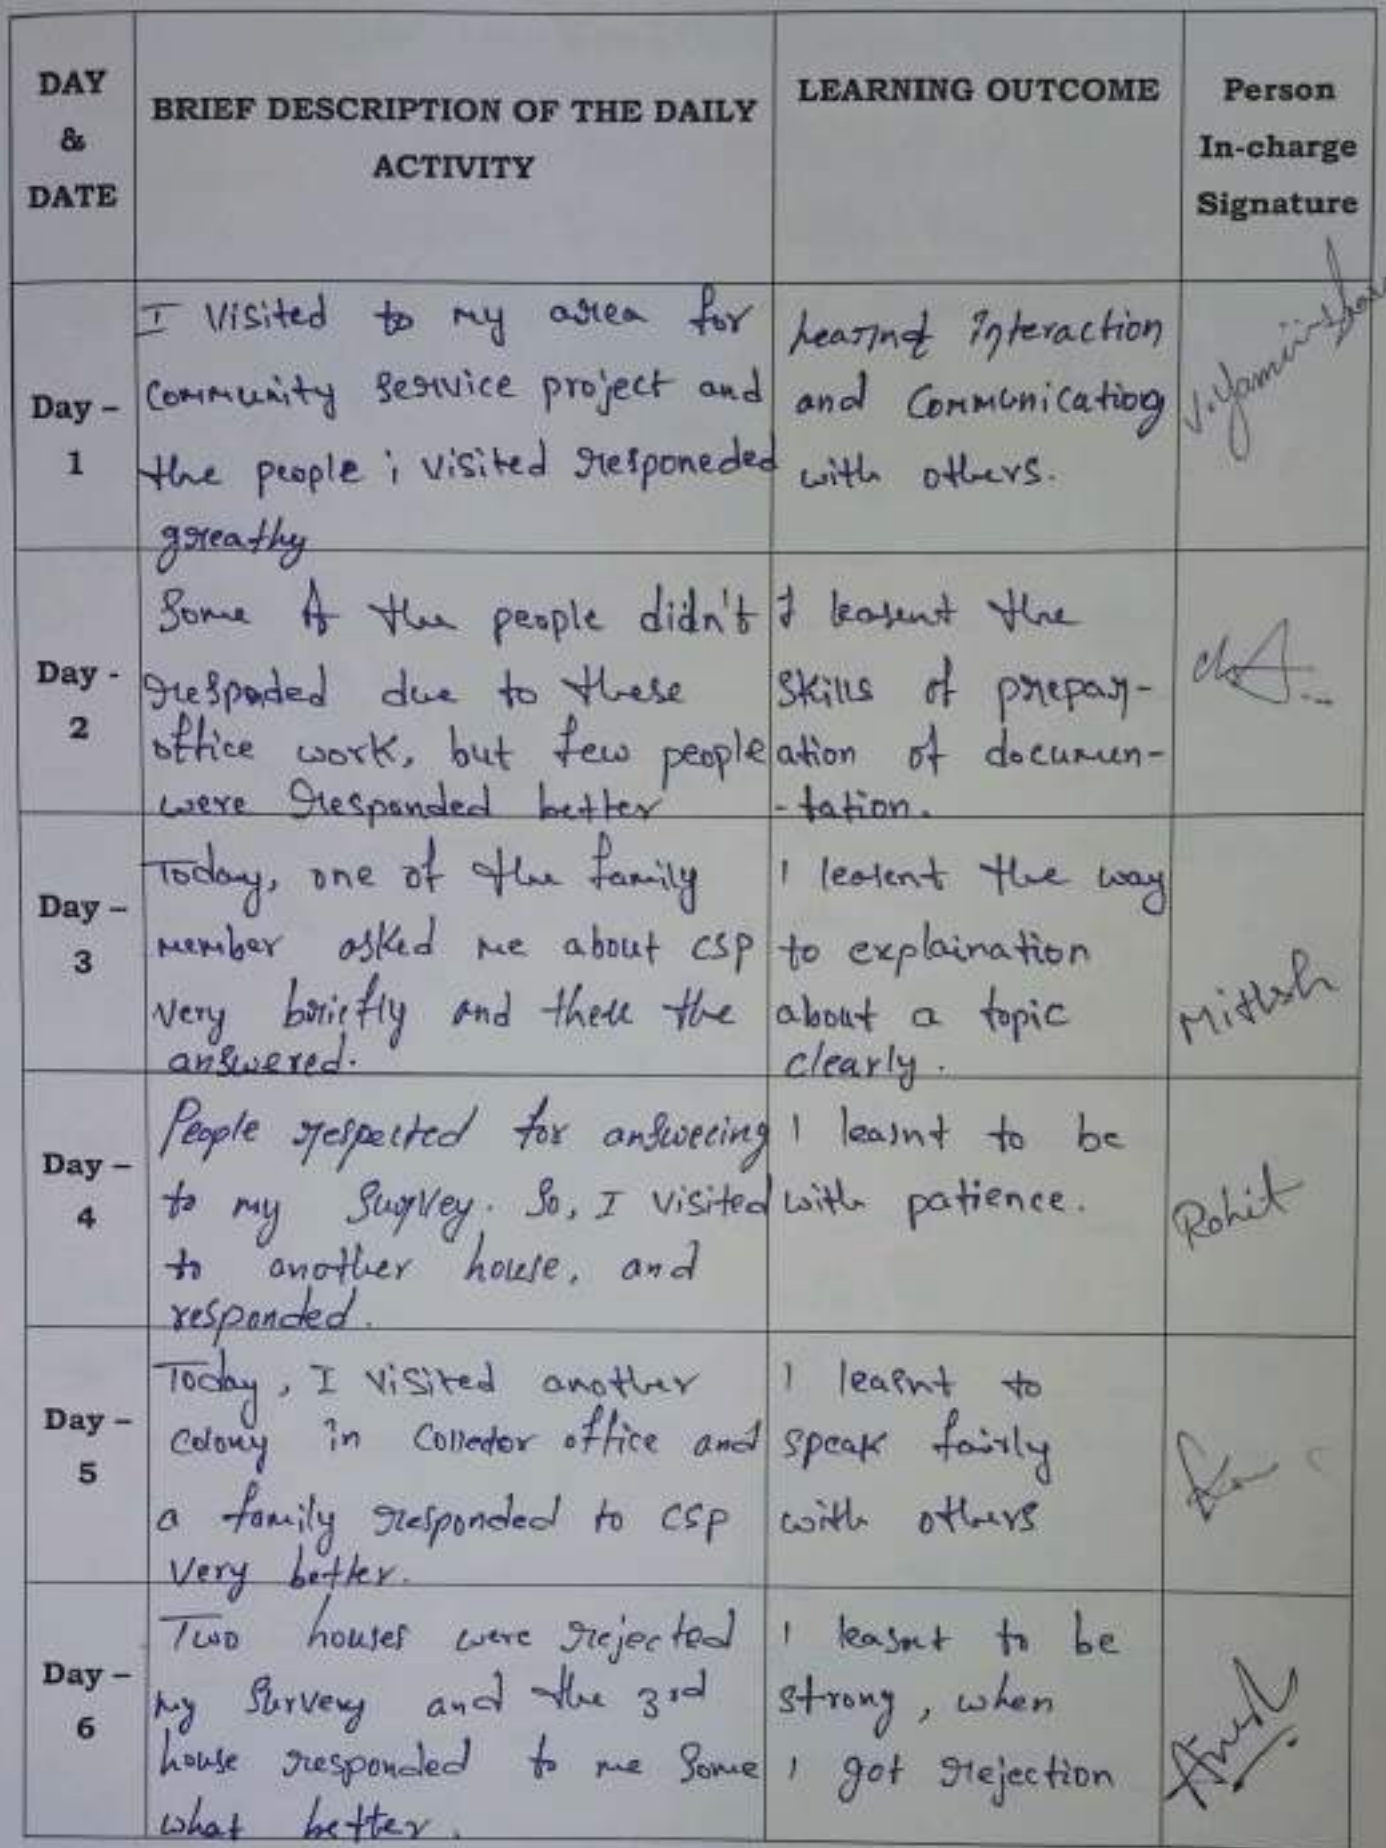 DAY
&
DATE
BRIEF DESCRIPTION OF THE DAILY
ACTIVITY
LEARNING OUTCOME
Person
In-charge
Signature
Day –
1
I visited to my area for
Community service project and
the people i visited responeded
greatly
Learing interaction
and Communicating
with others.
V. Yamini
Day -
2
Some of the people didn't
respoded due to these
office work, but few people
were responded better
I learnt the
skills of prepar-
ation of documen-
-tation.
Day –
3
Today, one of the family
member asked me about CSP
very briefly and the
answered.
I learnt the way
to explaination
about a topic
clearly.
Mithsh
Day –
4
People respected for answering
to my Survey. So, I visited
to another house, and
responded.
I learnt to be
with patience.
Rohit
Day –
5
Today, I visited another
colony in Collector office and
a family responded to CSP
very better.
I learnt to
speak fairly
with others
Day –
6
Two houses were rejected
my Survery and the 3rd
house responded to me Some
what better.
I learnt to be
strong, when
I got rejection